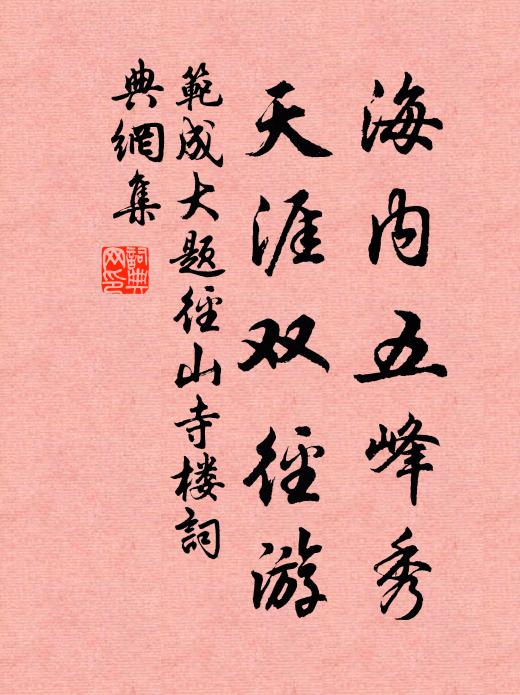 海内五峰秀
天涯双徑游
範成大題徑山寺楼詞
典網集
詞典
网印